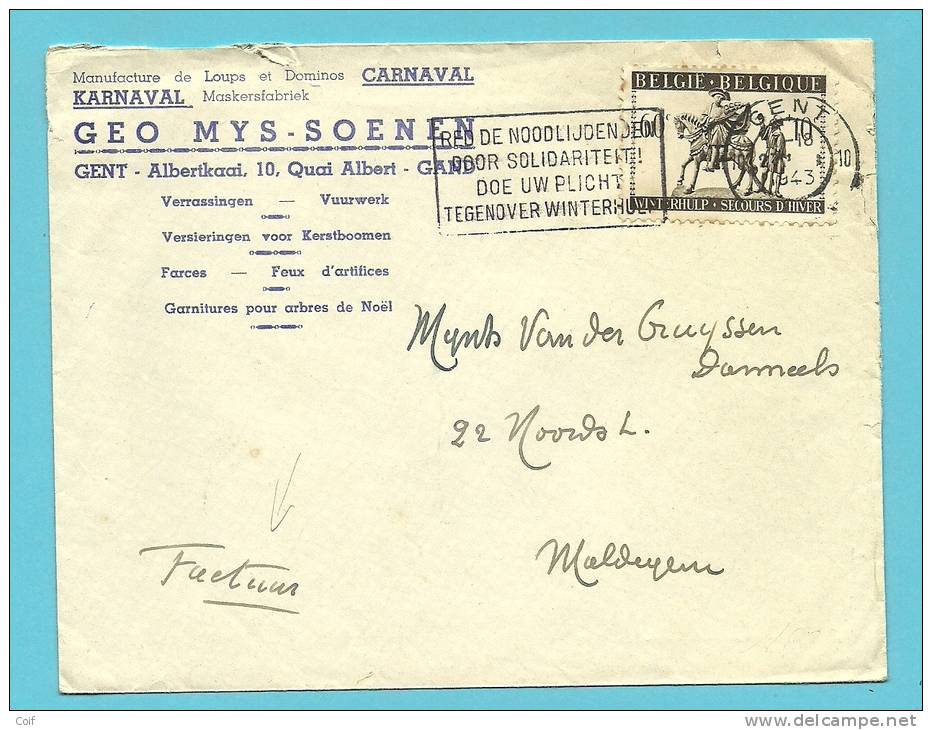 Manufacture de Loups et Dominos CARNAVAL
KARNAVAL Maskersfabriek
GEO MYS-SOENEN
GENT - Albertkaai, 10, Quai Albert - GAND
Verrassingen — Vuurwerk
Versieringen voor Kerstboomen
Farces — Feux d'artifices
Garnitures pour arbres de Noël
RED DE NOODLIJDENDEN
DOOR SOLIDARITEIT!
DOE UW PLICHT
TEGENOVER WINTERHULP
BELGIE · BELGIQUE
60c 10
WINTERHULP · SECOURS D'HIVER
GENT
18
943
10
Van der Gruyssen
Danneels
22 Noordst.
Maldegem
Factuur
Coif
www.delcampe.net